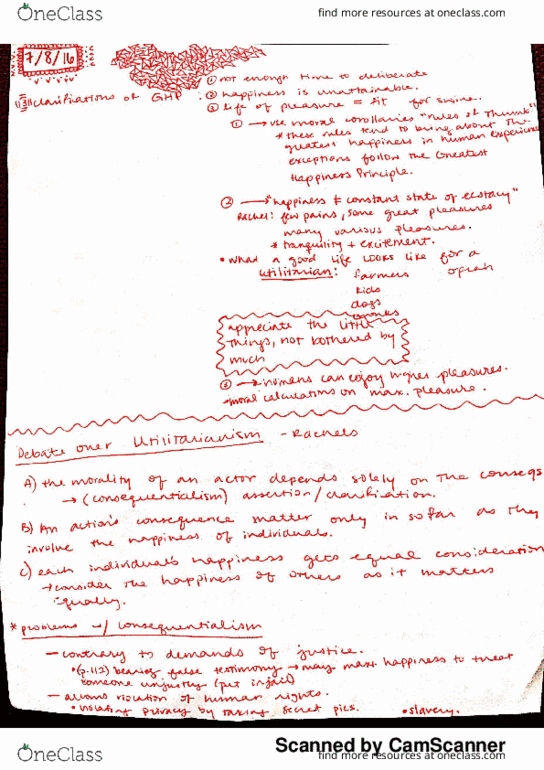 OneClass
find more resources at oneclass.com
7/8/16
① not enough time to deliberate
"3" clarifications of GHP: ② happiness is unattainable.
③ life of pleasure = fit for swine.
① → use moral corollaries "rules of thumb"
* these rules tend to bring about the
greatest happiness in human experience
exceptions follow the Greatest
Happiness Principle.
② → "happiness ≠ constant state of ecstacy"
Rachel: few pains, some great pleasures
many various pleasures.
* tranquility + excitement.
• what a good life looks like for a
utilitarian: farmers oprah
kids
dogs
appreciate the little
things, not bothered by
much
③ → humans can enjoy higher pleasures.
moral calculations on max. pleasure.
Debate over Utilitarianism - Rachels
A) the morality of an actor depends solely on the conseqs
→ (consequentialism) assertion/clarification.
B) An action's consequence matter only in so far as they
involve the happiness of individuals.
C) each individual's happiness gets equal consideration
→ consider the happiness of others as it matters
equally.
* problems w/ consequentialism
– contrary to demands of justice.
• (p.112) bearing false testimony → may max. happiness to treat
someone unjustly (put in jail)
– allows violation of human rights.
• violating privacy by taking secret pics. • slavery.
Scanned by CamScanner
OneClass
find more resources at oneclass.com